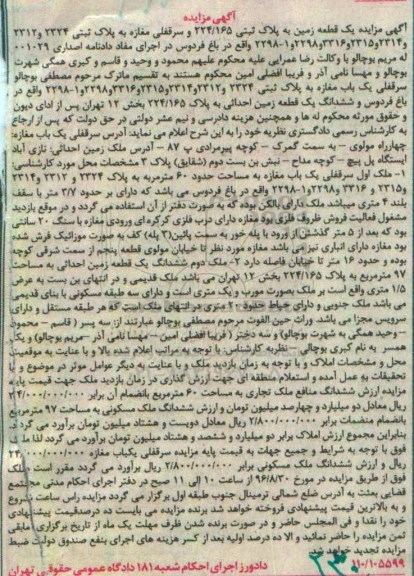 آگهی مزایده
آگهی مزایده یک قطعه زمین به پلاک ثبتی ۲۲۴/۱۶۵ و سرقفلی مغازه به پلاک ثبتی ۲۳۲۴ و ۲۳۱۲
و۲۳۱۴و۲۳۱۵و۲۳۱۶و۲۲۹۸و۱-۲۲۹۸ واقع در باغ فردوس در اجرای مفاد دادنامه اصداری ۰۰۱۰۲۹
له مریم بوچالو با وکالت رضا عمرایی علیه محکوم علیهم محمود و وحید و قاسم و کبری همگی شهرت
بوچالو و مهسا نامی آذر و فریبا افضلی امین محکوم هستند به تقسیم ماترک مرحوم مصطفی بوچالو
سرقفلی یک باب مغازه به پلاک ثبتی ۲۳۲۴ و ۲۳۱۲و۲۳۱۴و۲۳۱۵و۲۳۱۶و۲۲۹۸و۱-۲۲۹۸ واقع در
باغ فردوس و ششدانگ یک قطعه زمین احداثی به پلاک ۲۲۴/۱۶۵ بخش ۱۲ تهران پس از ادای دیون
و حقوق مورثه محکوم له ها و همچنین هزینه دادرسی و نیم عشر دولتی در حق دولت که پس از ارجاع
به کارشناس رسمی دادگستری نظریه خود را به این شرح اعلام می نماید: آدرس سرقفلی یک باب مغازه:
چهارراه مولوی – به سمت گمرک – کوچه پیرمرادی پ ۸۷ – آدرس ملک زمین احداثی: نازی آباد
ایستگاه پل پیچ – کوچه مداح – نبش بن بست دوم (شقایق) پلاک ۳ مشخصات محل مورد کارشناسی:
۱- ملک اول سرقفلی یک باب مغازه به مساحت حدود ۶۰ مترمربه به پلاک ۲۳۲۴ و ۲۳۱۲ و ۲۳۱۴
و۲۳۱۵ و ۲۳۱۶ و۲۲۹۸و۱-۲۲۹۸ واقع در باغ فردوس می باشد که دارای بر حدود ۳/۷ متر با سقف
بلند ۴ متری میباشد ملک دارای بالکن بوده که به صورت دفتر از آن استفاده می گردد و در موقع بازدید
مشغول فعالیت فروش ظروف فلزی بود مغازه دارای درب فلزی کرکره ای ورودی مغازه با سنگ ۲۰ سانتی
بود که بعد از ۵ متر گذشتن از ورود با پله خور به سمت پائین(۳ پله) کف به صورت موزائیک فرش شده
بود مغازه دارای انباری نیز می باشد مغازه مورد نظر تا خیابان مولوی قطعه پنجم از سمت شرقی کوچه
بوده و حدود ۱۶ متر تا خیابان فاصله دارد ۲- ملک دوم ششدانگ یک قطعه زمین احداثی به مساحت
۹۷ مترمربع به پلاک ۲۲۴/۱۶۵ بخش ۱۲ تهران می باشد ملک قدیمی و در انتهای بن بست به عرض
۱/۵ متری واقع است بر ملک بصورت مورب و یک متری است و دارای سه طبقه مسکونی با بنای قدیمی
می باشد ملک جنوبی و دارای حیاط حدود ۲۰ متری در انتهای ملک است که هر طبقه مستقل و دارای
سرویس مجزا می باشد. وراث حین الفوت مرحوم مصطفی بوچالو عبارتند از: سه پسر ( قاسم – محمود
– وحید همگی به شهرت بوچالو) و سه دختر ( فریبا افضلی امین – مهسا نامی آذر –مریم بوچالو) و یک
همسر به نام کبری بوچالی – نظریه کارشناس: با توجه به مراتب اعلام شده بالا و با عنایت به موقعیت
محل و مشخصات املاک و با توجه به زمان بازدید ملک و با عنایت به دیگر عوامل موثر در موضوع و با
تحقیقات به عمل آمده و استعلام منطقه ای جهت ارزش گذاری در زمان بازدید ملک جهت قیمت پایه
مزایده ارزش ششدانگ منافع ملک تجاری به مساحت ۶۰ مترمربع بانضمام آن برابر ۲۴/۰۰۰/۰۰۰/۰۰۰
ریال معادل دو میلیارد و چهارصد میلیون تومان و ارزش ششدانگ ملک مسکونی به مساحت ۹۷ مترمربع
بانضمام منضمات برابر ۲/۸۰۰/۰۰۰/۰۰۰ ریال معادل دویست و هشتاد میلیون تومان برآورد می گردد
بنابراین مجموع ارزش املاک برابر دو میلیارد و ششصد و هشتاد میلیون تومان برآورد می گردد لذا ملک
فوق با توجه به شرایط و جمیع جهات به قیمت پایه مزایده سرقفلی یکباب مغازه ۲۴/۰۰۰/۰۰۰/۰۰۰
ریال و ارزش ششدانگ ملک مسکونی برابر ۲/۸۰۰/۰۰۰/۰۰۰ ریال برآورد می گردد مقرر است ملک
فوق از طریق مزایده در مورخ ۹۶/۸/۳۰ از ساعت ۱۰ الی ۱۱ صبح در دفتر اجرای احکام مدنی مجتمع
قضایی بعثت به آدرس ضلع شمالی ترمینال جنوب طبقه اول برگزار می گردد مزایده راس ساعت شروع
و به بالاترین قیمت پیشنهادی فروخته خواهد شد برنده مزایده می بایست ده درصدقیمت پیشنهادی
خود را نقدا و فی المجلس حاضر و در صورت برنده شدن ظرف مهلت یک ماه از تاریخ برگزاری مابقی
ثمن مزایده را حاضر نمائید و الا ده درصد اولیه بعد از کسر هزینه های اجرای بنفع صندوق دولت ضبط
مزایده تجدید خواهد شد.
۱۱۰/۱۰۵۵۹۹ دادورز اجرای احکام شعبه ۱۸۱ دادگاه عمومی حقوقی تهران